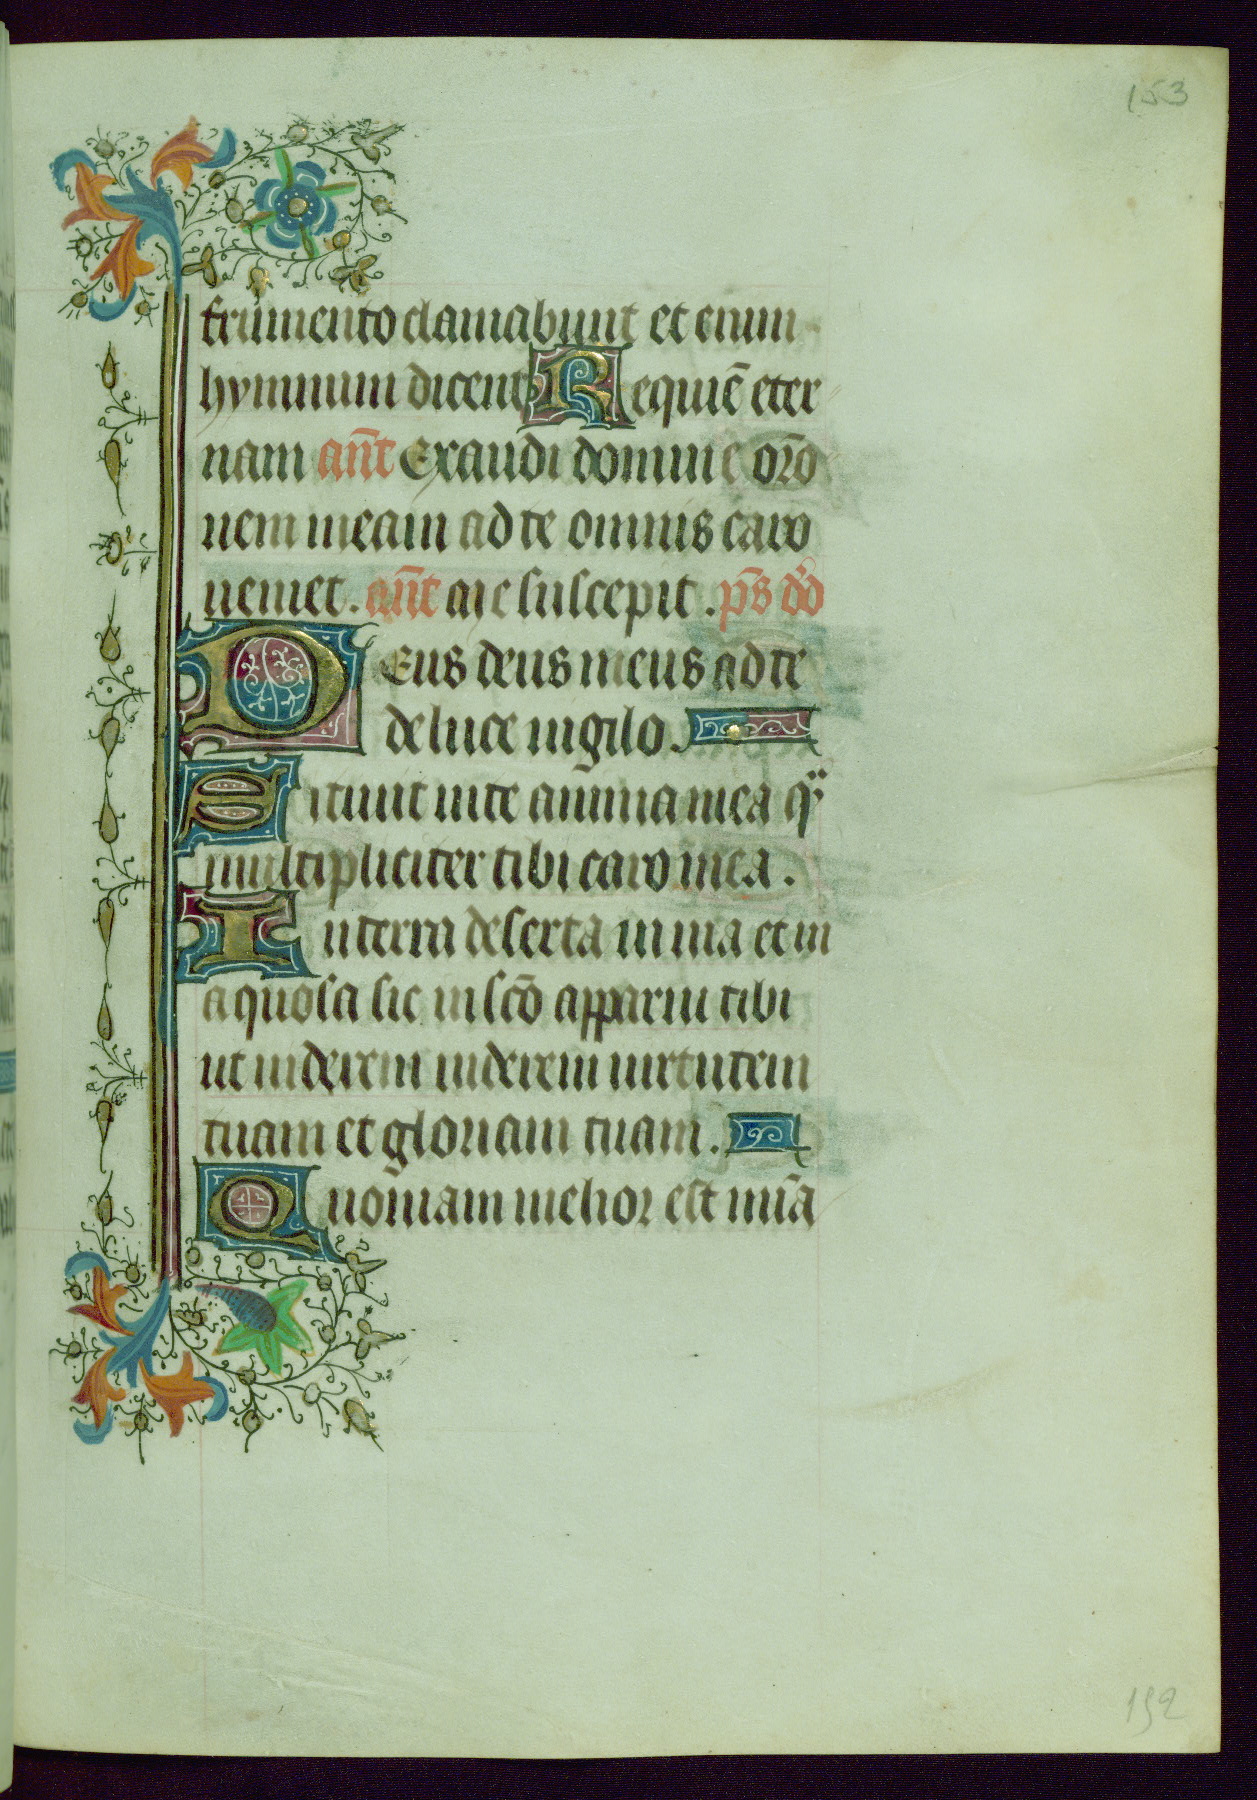 153
frumento clamabunt et enim
hymnum dicent Requiē eter
nam an̄t Exaudi domine or̄o
nem meam ad te omnis caro
ueniet. an̄t Me suscepit. p̄s dd
Deus deus meus ad te
de luce uigilo.
Sitiuit in te anima mea q̈
multipliciter tibi caro mea.
In terra deserta inuia et in
aquosa sic in scō apparui tibi
ut uiderem uiderem uirtutem
tuam et gloriam tuam.
Quoniam melior est mīa
152